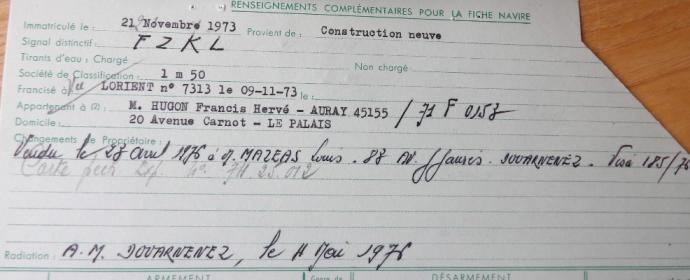 RENSEIGNEMENTS COMPLÉMENTAIRES POUR LA FICHE NAVIRE
Immatriculé le : 21 Novembre 1973 Provient de : Construction neuve
Signal distinctif : F Z K L
Tirants d'eau : Chargé Non chargé
Société de Classification : 1 m 50
Francisé à LORIENT n° 7313 le 09-11-73 le :
Appartenant à (2) : M. HUGON Francis Hervé - AURAY 45155 / 71 F 0153
Domicile : 20 Avenue Carnot - LE PALAIS
Changements de Propriétaire :
Vendu le 28 avril 1976 à M. MAZEAS Louis. 88 AV. J Jaurès. DOUARNENEZ. Visé 185/76
Carte
Radiation : A.M. DOUARNENEZ, le 11 Mai 1976
ARMEMENT DÉSARMEMENT